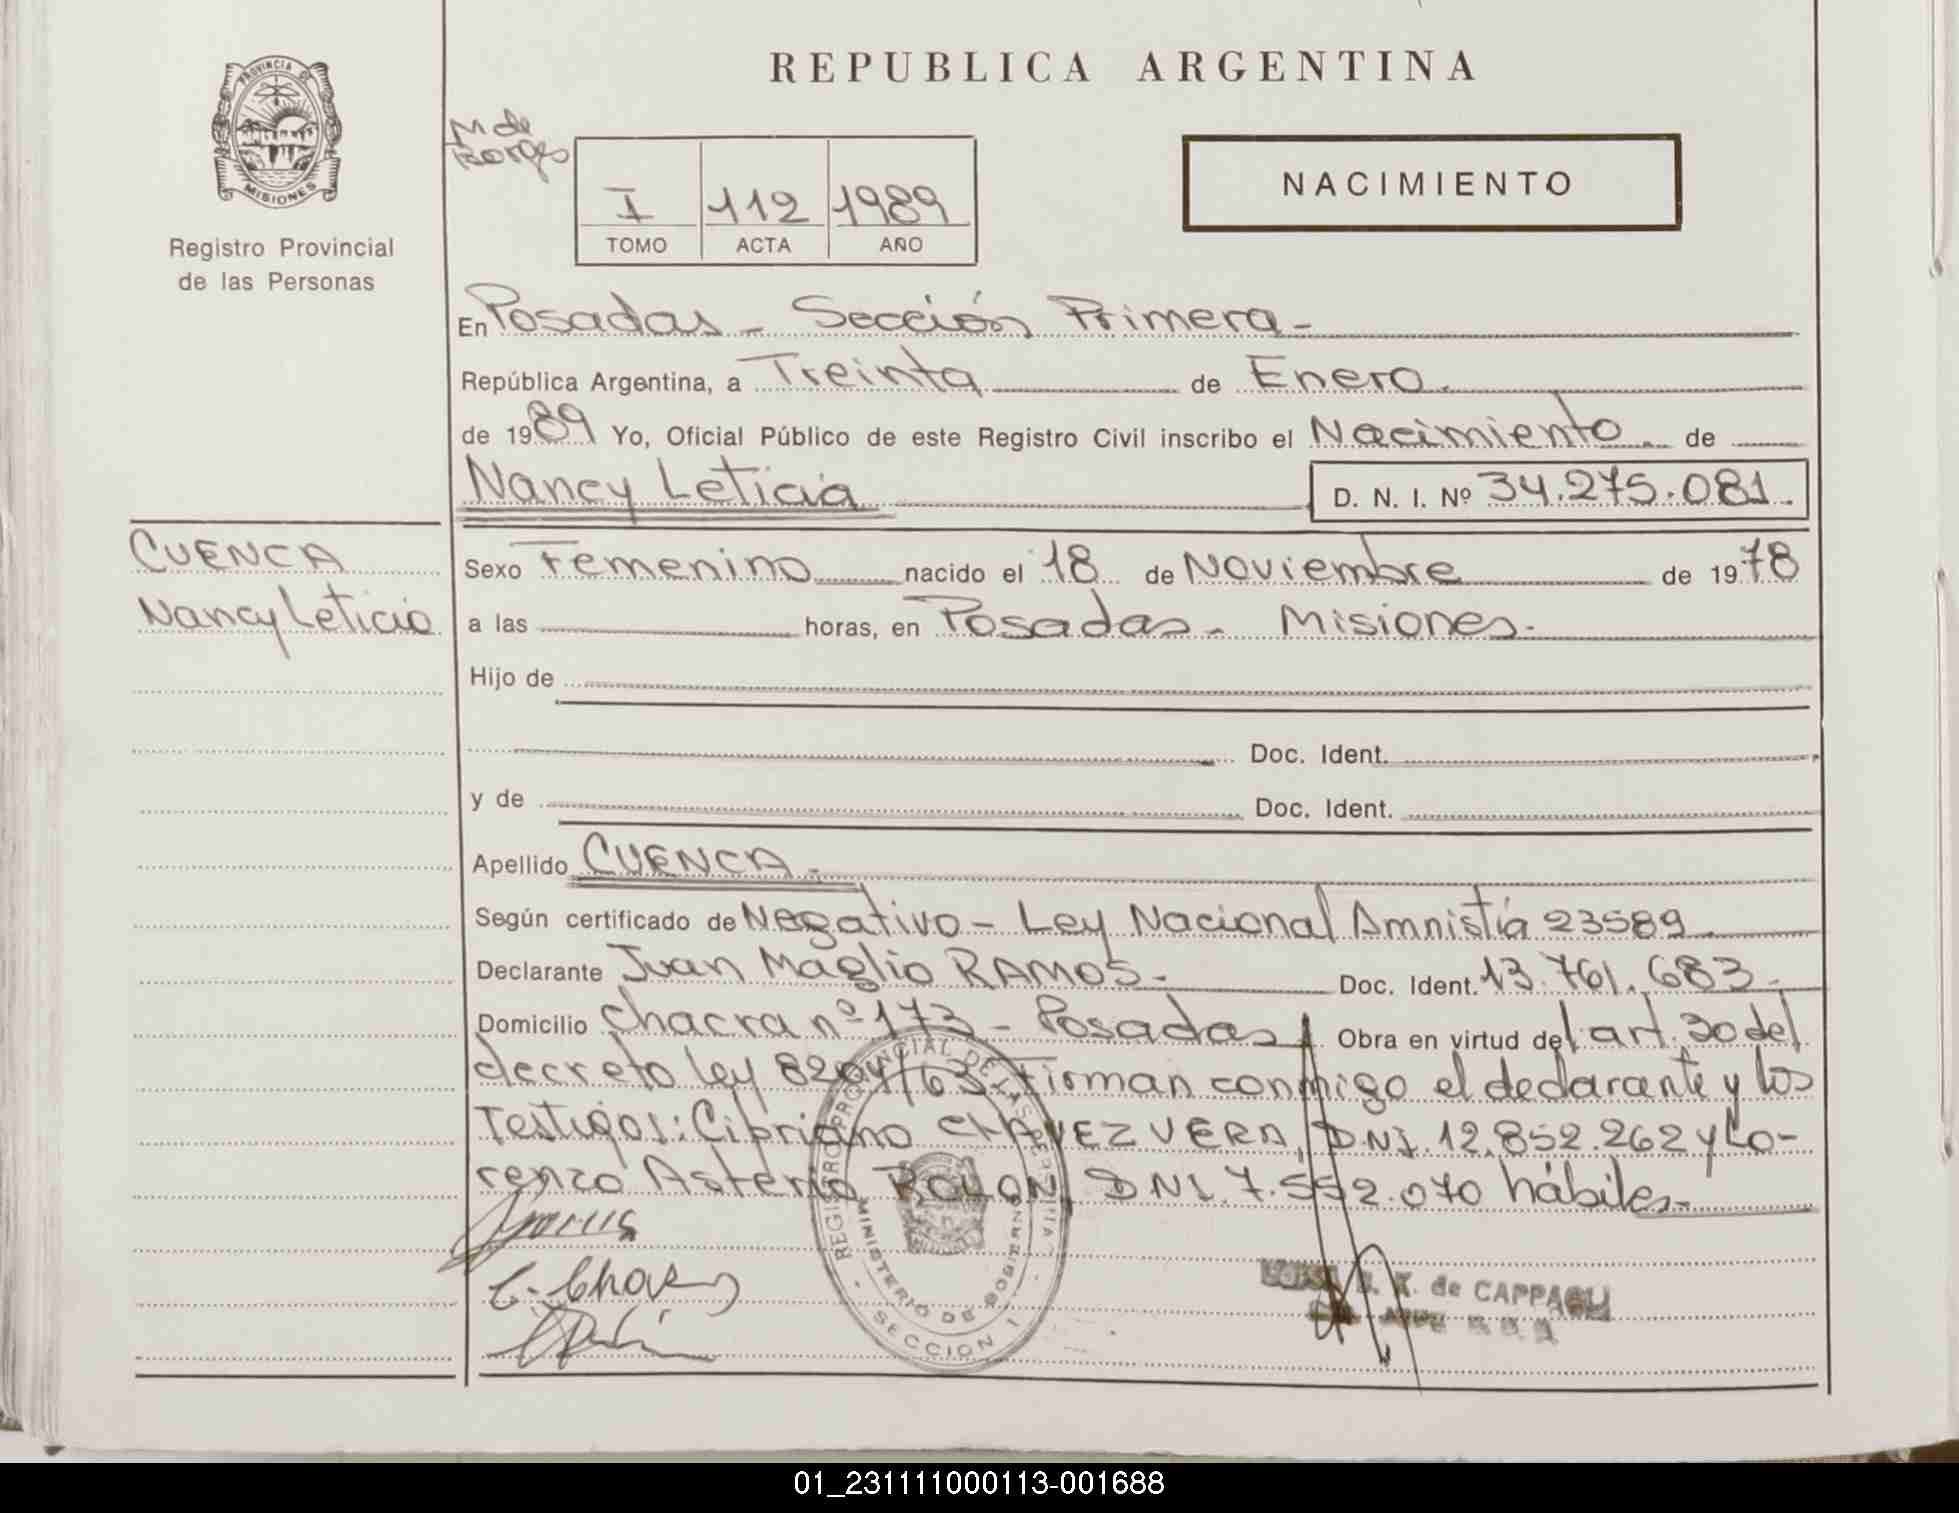 REPUBLICA ARGENTINA
PROVINCIA DE
MISIONES
Registro Provincial
de las Personas
M de
Borges
I 112 1989
TOMO ACTA AÑO
NACIMIENTO
En Posadas - Sección Primera -
República Argentina, a Treinta de Enero.
de 1989 Yo, Oficial Público de este Registro Civil inscribo el Nacimiento. de
Nancy Leticia D. N. I. Nº 34.275.081.
CUENCA
Nancy Leticia
Sexo Femenino nacido el 18 de Noviembre de 1978
a las horas, en Posadas - Misiones.
Hijo de
Doc. Ident.
y de Doc. Ident.
Apellido CUENCA.
Según certificado de Negativo - Ley Nacional Amnistía 23589.
Declarante Juan Maglio RAMOS. Doc. Ident. 13.761.683.
Domicilio Chacra nº 173 - Posadas Obra en virtud del art. 30 del
decreto ley 8204/63. Firman conmigo el declarante y los
Testigos: Cipriano CHAVEZ VERA, DNI. 12.852.262 y Lo-
renzo Asterio ROLON, DNI. 7.552.070 hábiles.
C. Chavez
REGISTRO PROVINCIAL DE LAS PERSONAS
MINISTERIO DE GOBIERNO
- SECCION I -
de CAPPAGLI
01_231111000113-001688